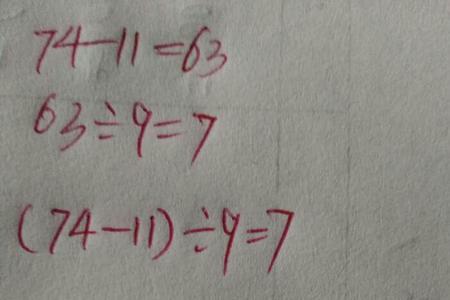 74-11=63
63÷9=7
(74-11)÷9=7